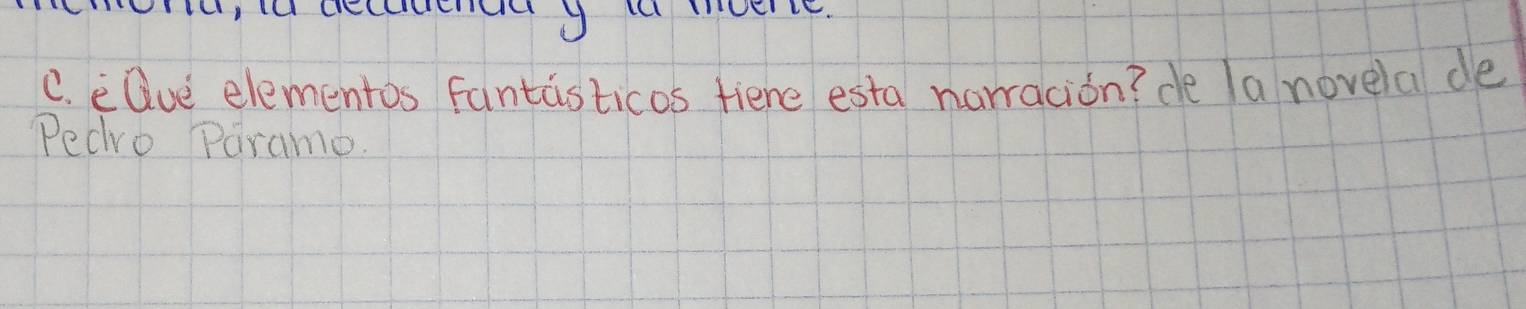 la decadencia y la muerte.
C. ¿Qué elementos fantásticos tiene esta narración? de la novela de
Pedro Páramo.